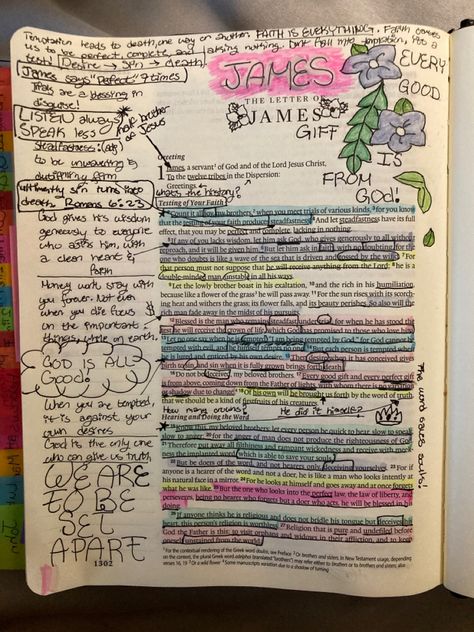 Temptation leads to death, one way or another. FAITH IS EVERYTHING. Faith
us to be perfect, complete, and lacking nothing. Don't fall into temptation, it's a
test! Desire → Sin → death
James says "Perfect" 7 times
Trials are a blessing in
disguise!
LISTEN always
SPEAK less
half brother
of Jesus
Steadfastness:
to be unwavering &
dutifully firm
ultimately sin turns into
death. Romans 6:23
God gives His wisdom
generously to everyone
who asks Him, with
a clean heart &
Faith
Money won't stay with
you forever. Not even
when you die. Focus
on the important
things, while on earth.
GOD IS ALL
Good!
When you are tempted,
it is against your
own desires
God is the only one
who can give us truth
WE ARE
TO BE
SET
APART
1302
JAMES
THE LETTER OF
JAMES
EVERY
GOOD
GIFT
IS
FROM
God!
Greeting
1 James, a servant of God and of the Lord Jesus Christ,
To the twelve tribes in the Dispersion:
Greetings.
what's the history?
Testing of Your Faith
2 Count it all joy, my brothers, when you meet trials of various kinds, 3 for you know
that the testing of your faith produces steadfastness. 4 And let steadfastness have its full
effect, that you may be perfect and complete, lacking in nothing.
5 If any of you lacks wisdom, let him ask God, who gives generously to all without
reproach, and it will be given him. 6 But let him ask in faith, with no doubting, for the
one who doubts is like a wave of the sea that is driven and tossed by the wind. 7 For
that person must not suppose that he will receive anything from the Lord; 8 he is a
double-minded man, unstable in all his ways.
9 Let the lowly brother boast in his exaltation, 10 and the rich in his humiliation,
because like a flower of the grass he will pass away. 11 For the sun rises with its scorch-
ing heat and withers the grass; its flower falls, and its beauty perishes. So also will the
rich man fade away in the midst of his pursuits.
12 Blessed is the man who remains steadfast under trial, for when he has stood the
test he will receive the crown of life, which God has promised to those who love him.
13 Let no one say when he is tempted, "I am being tempted by God," for God cannot be
tempted with evil, and he himself tempts no one. 14 But each person is tempted when
he is lured and enticed by his own desire. 15 Then desire when it has conceived gives
birth to sin, and sin when it is fully grown brings forth death.
16 Do not be deceived, my beloved brothers. 17 Every good gift and every perfect gift
is from above, coming down from the Father of lights, with whom there is no variation
or shadow due to change. 18 Of his own will he brought us forth by the word of truth,
that we should be a kind of firstfruits of his creatures.
How many crowns?
He did it himself?
Hearing and Doing the Word
19 Know this, my beloved brothers: let every person be quick to hear, slow to speak,
slow to anger; 20 for the anger of man does not produce the righteousness of God.
21 Therefore put away all filthiness and rampant wickedness and receive with meek-
ness the implanted word, which is able to save your souls.
22 But be doers of the word, and not hearers only, deceiving yourselves. 23 For if
anyone is a hearer of the word and not a doer, he is like a man who looks intently at
his natural face in a mirror. 24 For he looks at himself and goes away and at once forgets
what he was like. 25 But the one who looks into the perfect law, the law of liberty, and
perseveres, being no hearer who forgets but a doer who acts, he will be blessed in his
doing.
26 If anyone thinks he is religious and does not bridle his tongue but deceives his
heart, this person's religion is worthless. 27 Religion that is pure and undefiled before
God the Father is this: to visit orphans and widows in their affliction, and to keep
oneself unstained from the world.
The word saves souls!